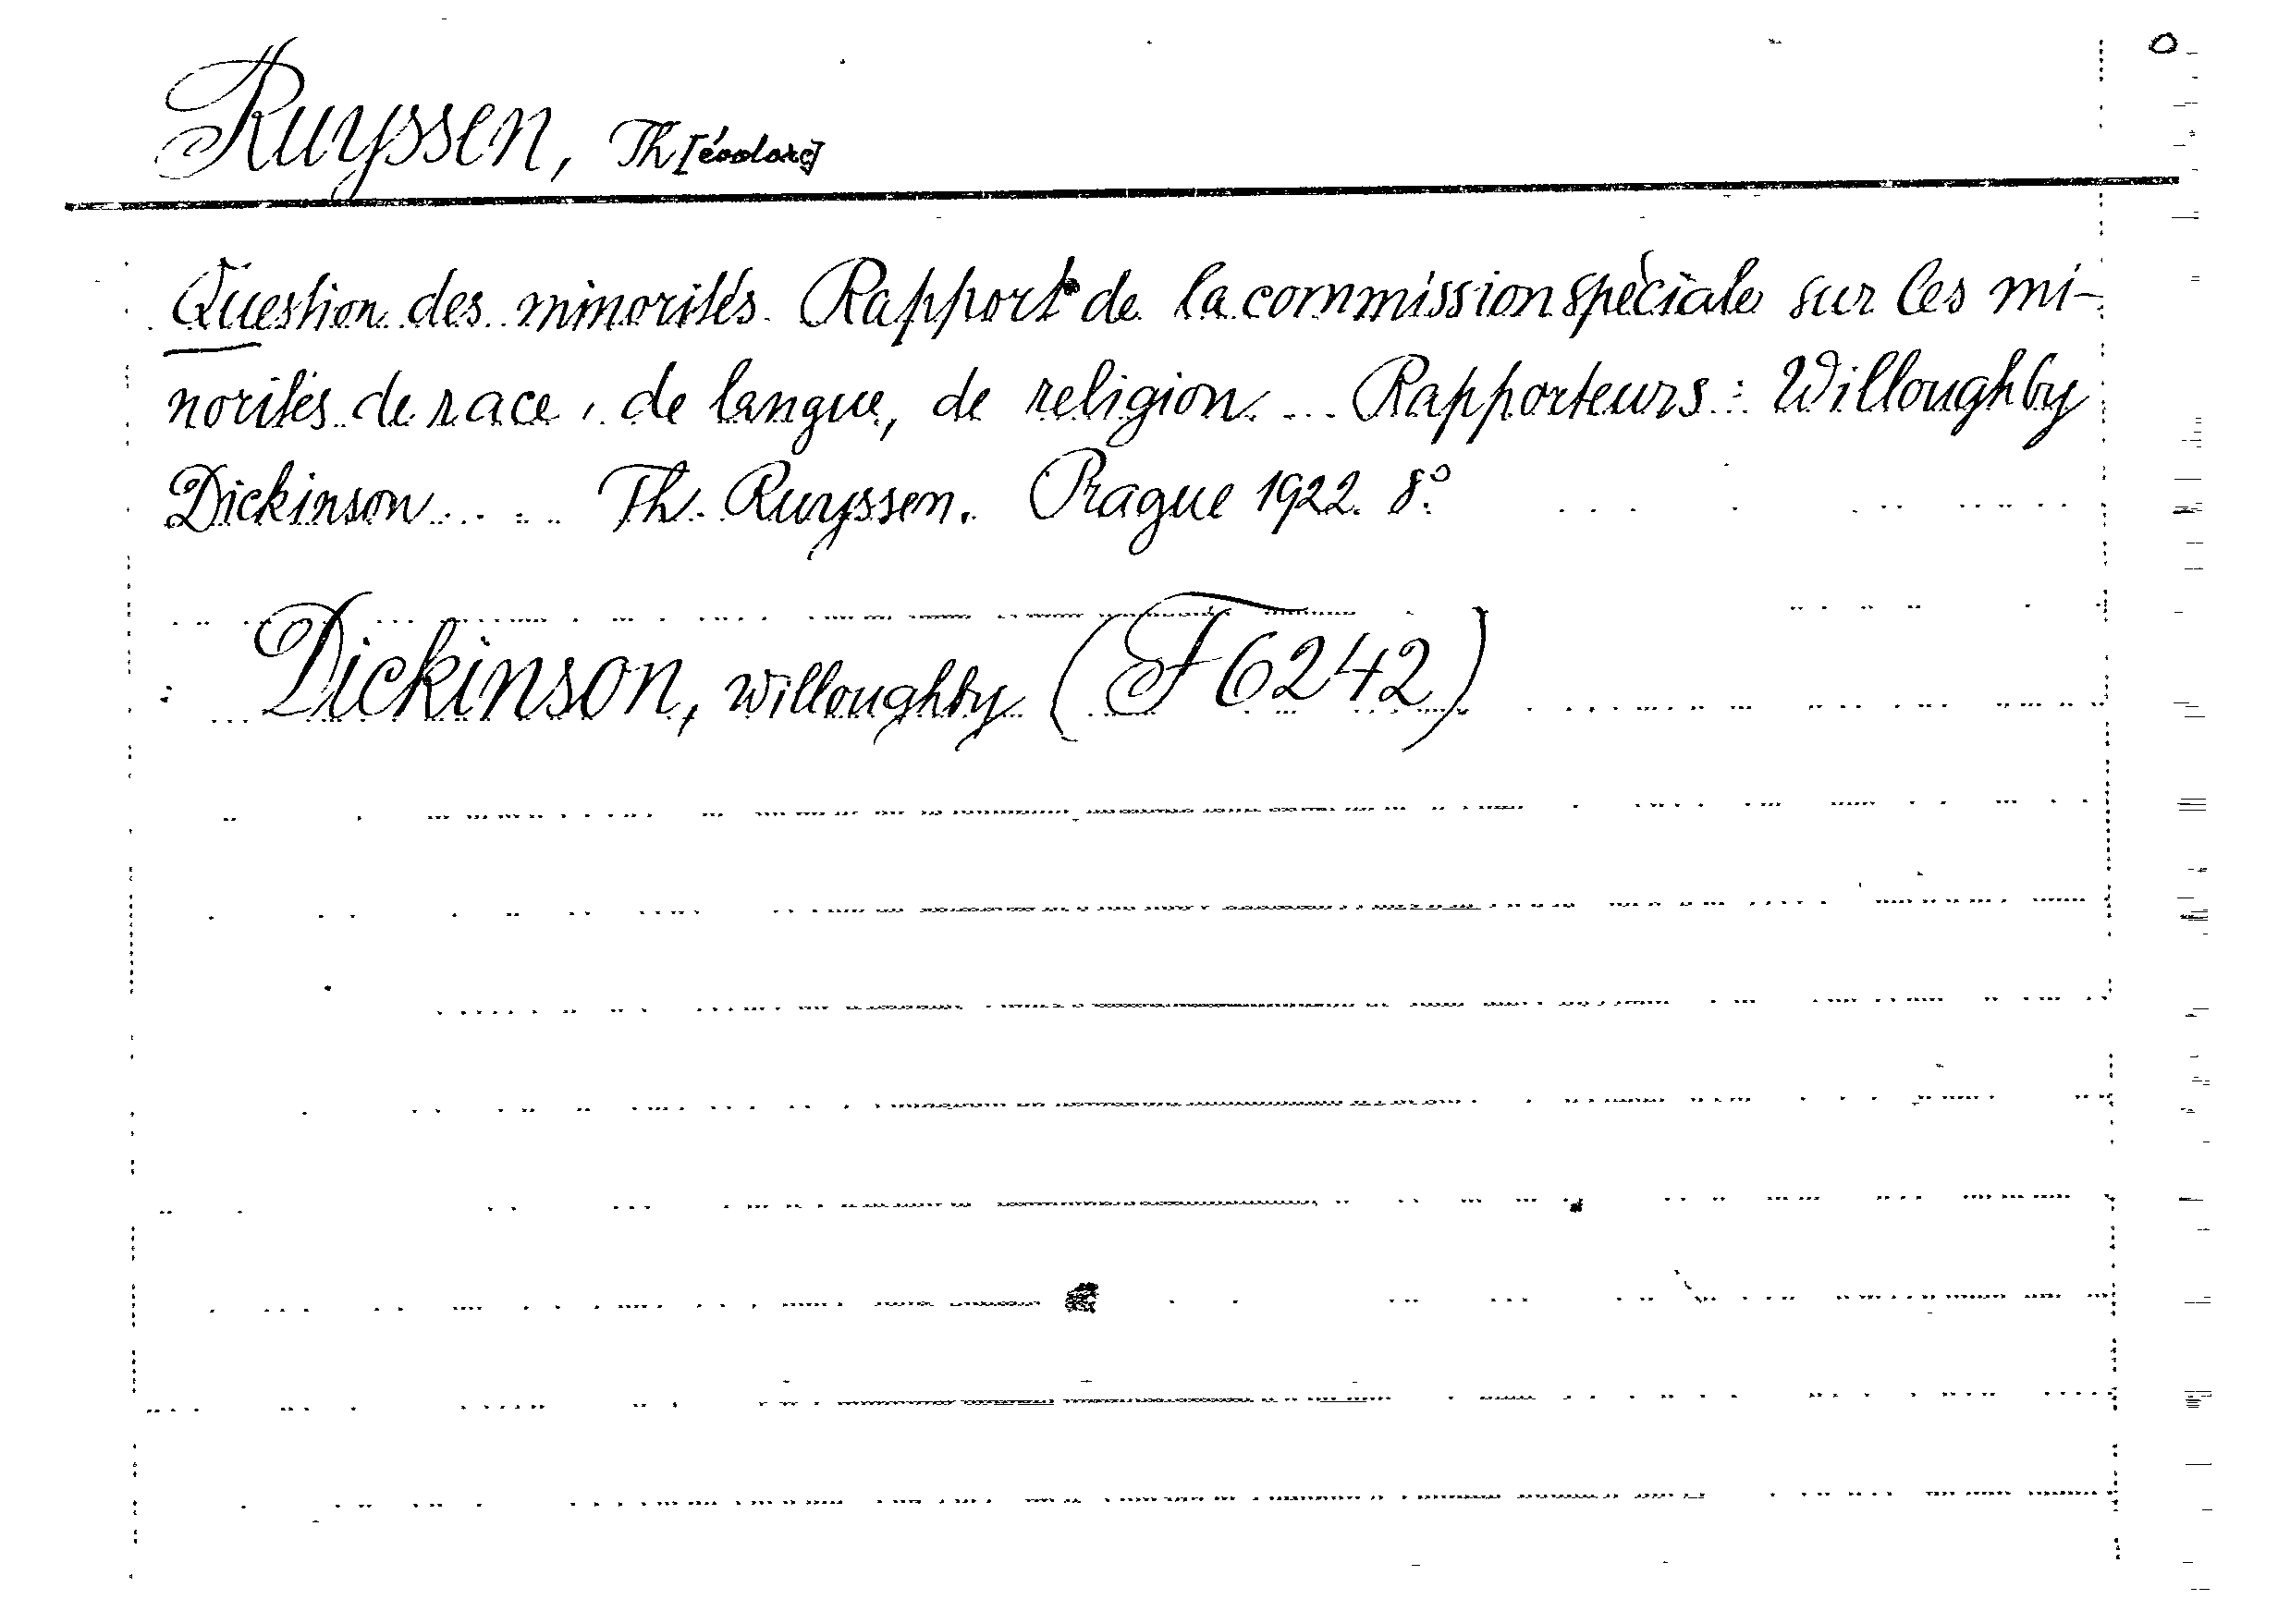 Ruyssen, Th[éodore]
Question des minorités. Rapport de la commission spéciale sur les mi-
norités de race, de langue, de religion... Rapporteurs: Willoughby
Dickinson..... Th. Ruyssen. Prague 1922. 8°
Dickinson, Willoughby (F 6242)